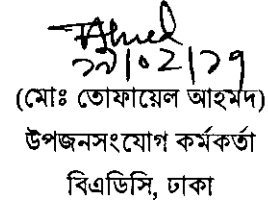 Ahmed
(মোঃ তোফায়েল আহমদ)
উপজনসংযোগ কর্মকর্তা
বিএডিসি, ঢাকা